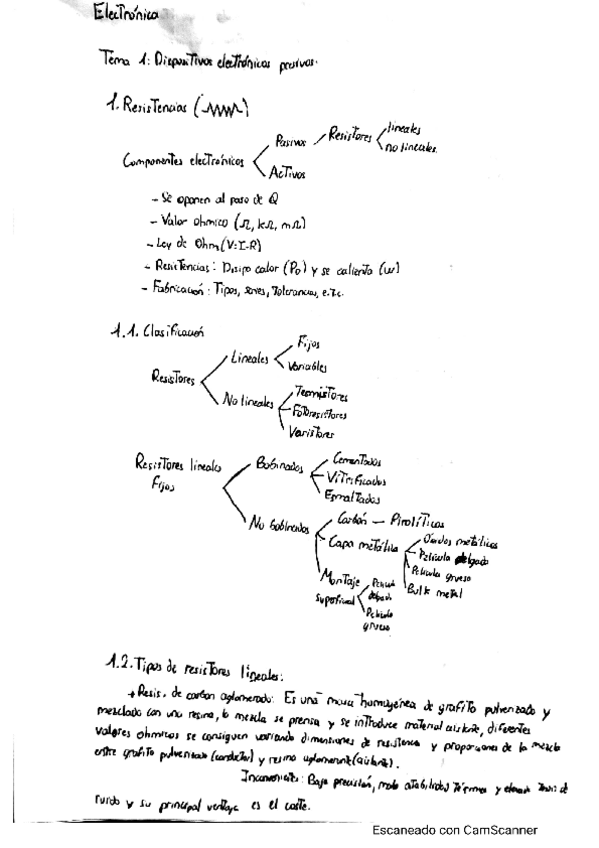 Electrónica
Tema 1: Dispositivos electrónicos pasivos.
1. Resistencias ( )
Componentes electrónicos
Pasivos
Resistores
lineales
no lineales.
Activos
- Se oponen al paso de Q
- Valor ohmico (Ω, kΩ, mΩ)
- Ley de Ohm (V=I·R)
- Resistencias: Disipa calor (Po) y se calienta (w)
- Fabricación: Tipos, series, Tolerancias, e.t.c.
1.1. Clasificación
Resistores
Lineales
Fijos
Variables
No lineales
Termistores
Fotoresistores
Varistores
Resistores lineales
Fijos
Bobinados
Cementados
Vitrificados
Esmaltados
No bobinados
Carbón — Pirolíticos
Capa metálica
Óxidos metálicos
Película delgada
Película gruesa
Bulk metal
Montaje
superficial
Película
delgada
Película
gruesa
1.2. Tipos de resistores lineales:
→ Resis. de carbon aglomerado: Es una masa homogénea de grafito pulverizado y
mezclado con una resina, la mezcla se prensa y se introduce material aislante, diferentes
valores ohmicos se consiguen variando dimensiones de resistencia y proporciones de la mezcla
entre grafito pulverizado (conductor) y resina aglomerante (aislante).
Inconvenientes: Baja precisión, mala estabilidad térmica y elevada de
ruido y su principal ventaja es el coste.
Escaneado con CamScanner